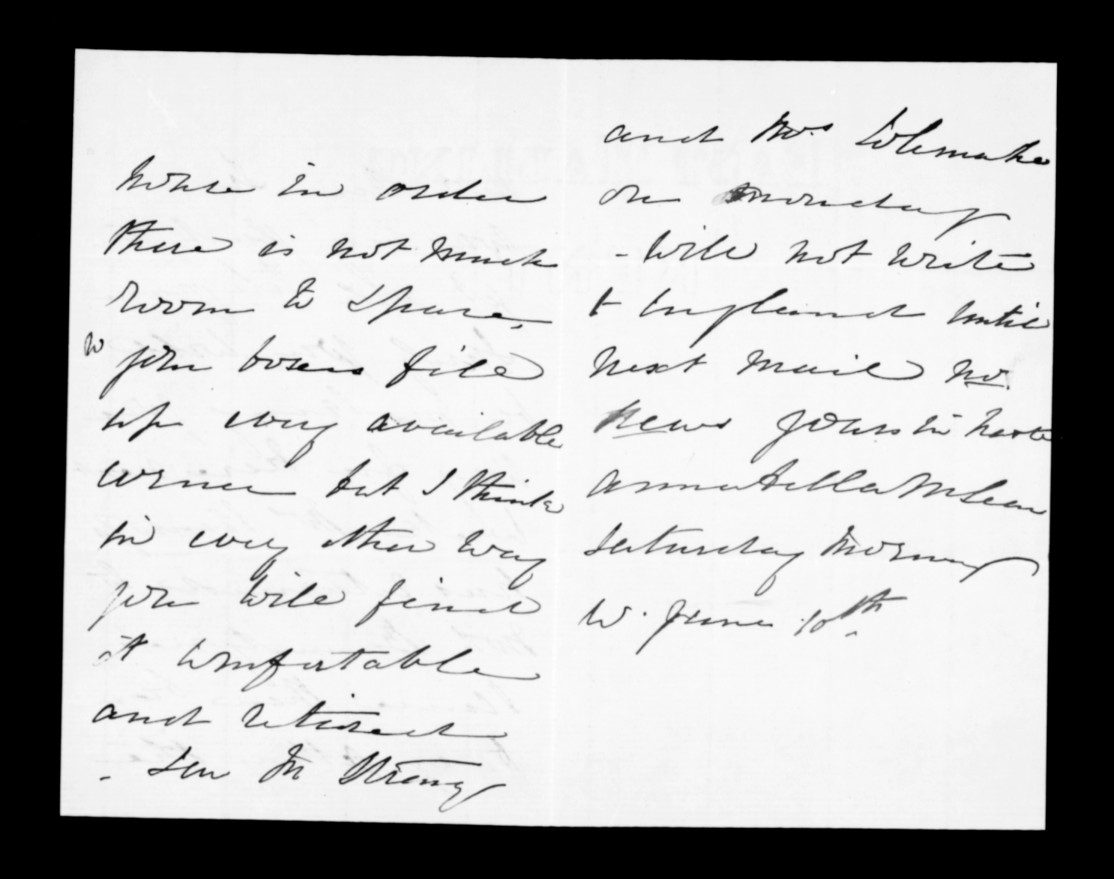 house in order
there is not much
room to spare,
your boxes file
up every available
corner but I think
in every other way
you will find
it comfortable
and retired
- Mr Strong
and Mrs
on monday
- Will not write
t England until
next mail no
news yours in haste
Annabella McLean
Saturday Morning
W. June 10th